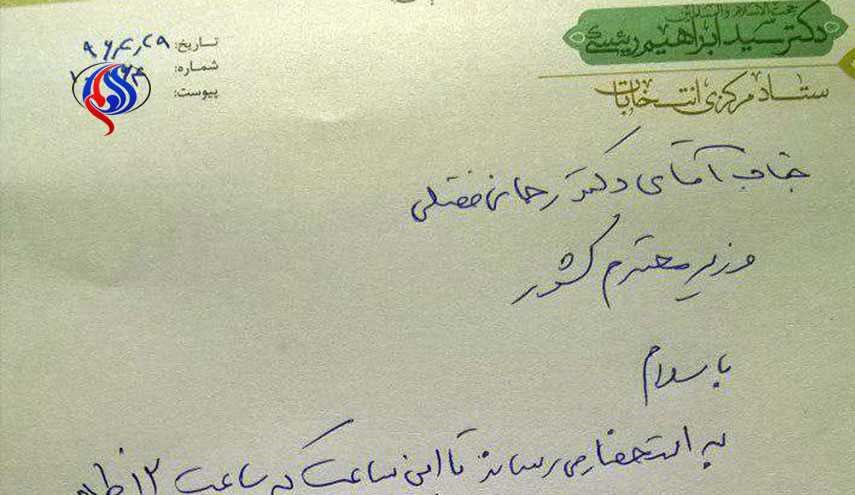 حجت الاسلام والمسلمین
دکتر سید ابراهیم رئیسی
ستاد مرکزی انتخابات
تاریخ: ۹۶/۲/۲۹
شماره:
پیوست:
جناب آقای دکتر رحمانی فضلی
وزیر محترم کشور
با سلام
به استحضار می رساند تا این ساعت که ساعت ۱۲